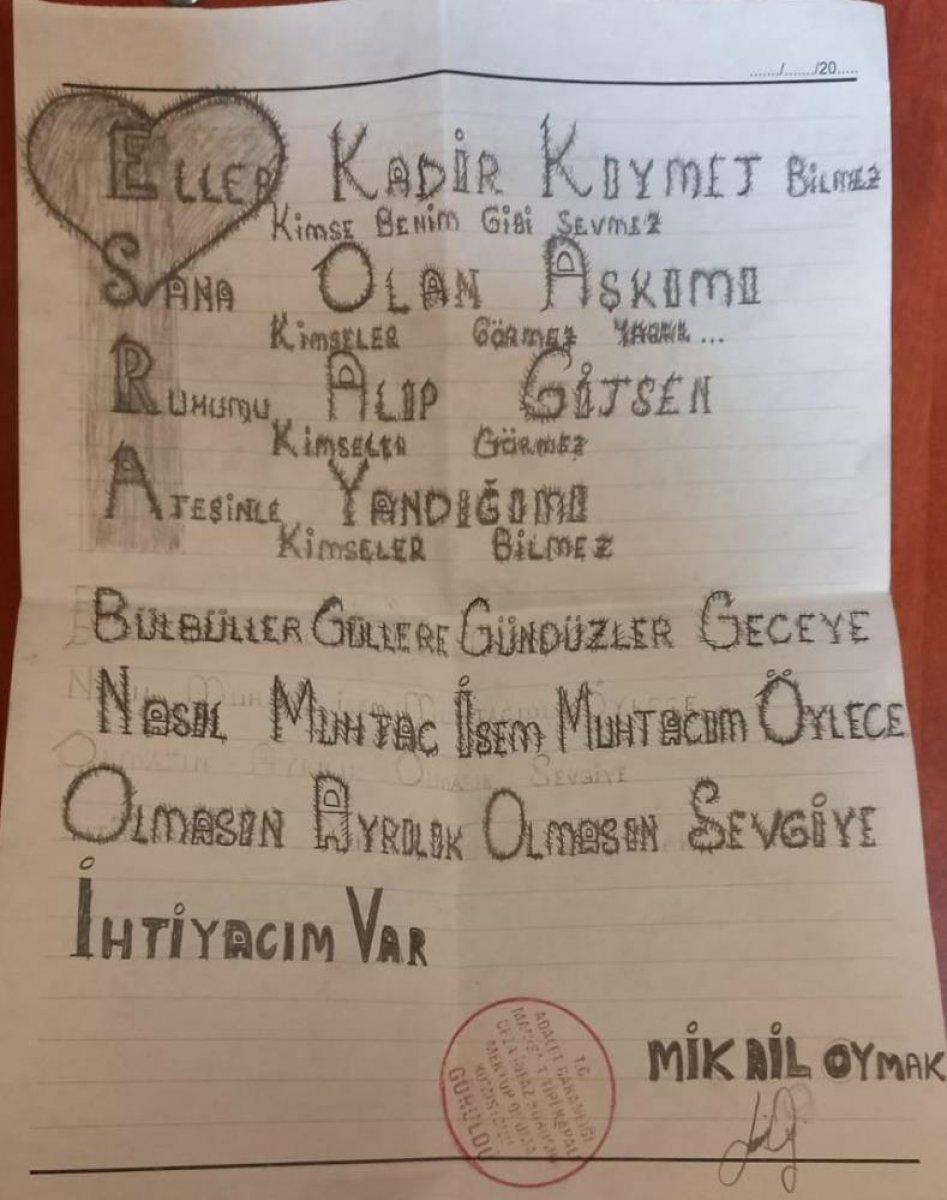 ...../...../20.....
ELLER KADİR KIYMET BİLMEZ
KİMSE BENİM GİBİ SEVMEZ
SANA OLAN AŞKIMI
KİMSELER GÖRMEZ
RUHUMU ALIP GİTSEN
KİMSELER GÖRMEZ
ATEŞİNLE YANDIĞIMI
KİMSELER BİLMEZ
BÜLBÜLLER GÜLLERE GÜNDÜZLER GECEYE
NASIL MUHTAÇ İSEM MUHTACIM ÖYLECE
OLMASIN AYRILIK OLMASIN SEVGİYE
İHTİYACIM VAR
MİKAİL OYMAK
T.C.
ADALET BAKANLIĞI
TİPİ KAPALI
CEZA İNFAZ KURUMU
MEKTUP OKUMA
GÖRÜLDÜ